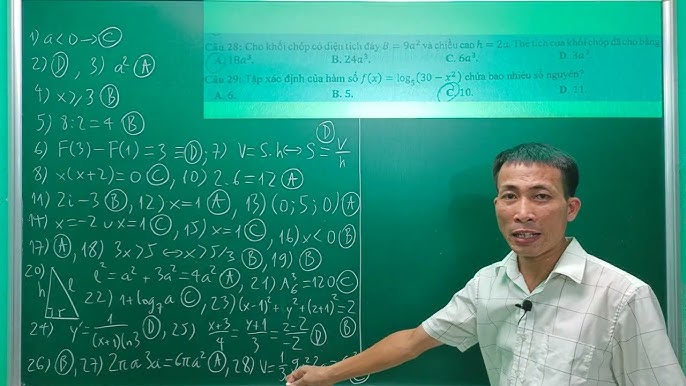 Câu 28: Cho khối chóp có diện tích đáy B = 9a² và chiều cao h = 2a. Thể tích của khối chóp đã cho bằng
A. 18a³. B. 24a³. C. 6a³. D. 3a³.
Câu 29: Tập xác định của hàm số f(x) = log₅(30 − x²) chứa bao nhiêu số nguyên?
A. 6. B. 5. C. 10. D. 11.
1) a < 0 → C
2) D, 3) a² A
4) x ≥ 3 B
5) 8:2 = 4 B
6) F(3) − F(1) = 3 = D; 7) V = S.h ⇔ S = V/h D
8) x(x+2) = 0 C, 10) 2.6 = 12 A
11) 2i − 3 B, 12) x = 1 A, 13) (0; 5; 0) A
14) x = −2 ∪ x = 1 C, 15) x = 1 C, 16) x < 0 B
17) A, 18) 3x > 5 ⇔ x > 5/3 B, 19) B
20) h l r l² = a² + 3a² = 4a² A, 21) = 120 C
22) 1 + log₇ a C, 23) (x−1)² + y² + (z+1)² = 2 B
24) y' = 1/(x+1)ln3 D, 25) x+3/4 = y+1/3 = z−2/−2 D
26) B, 27) 2πa 3a = 6πa² A, 28) V = 1/3